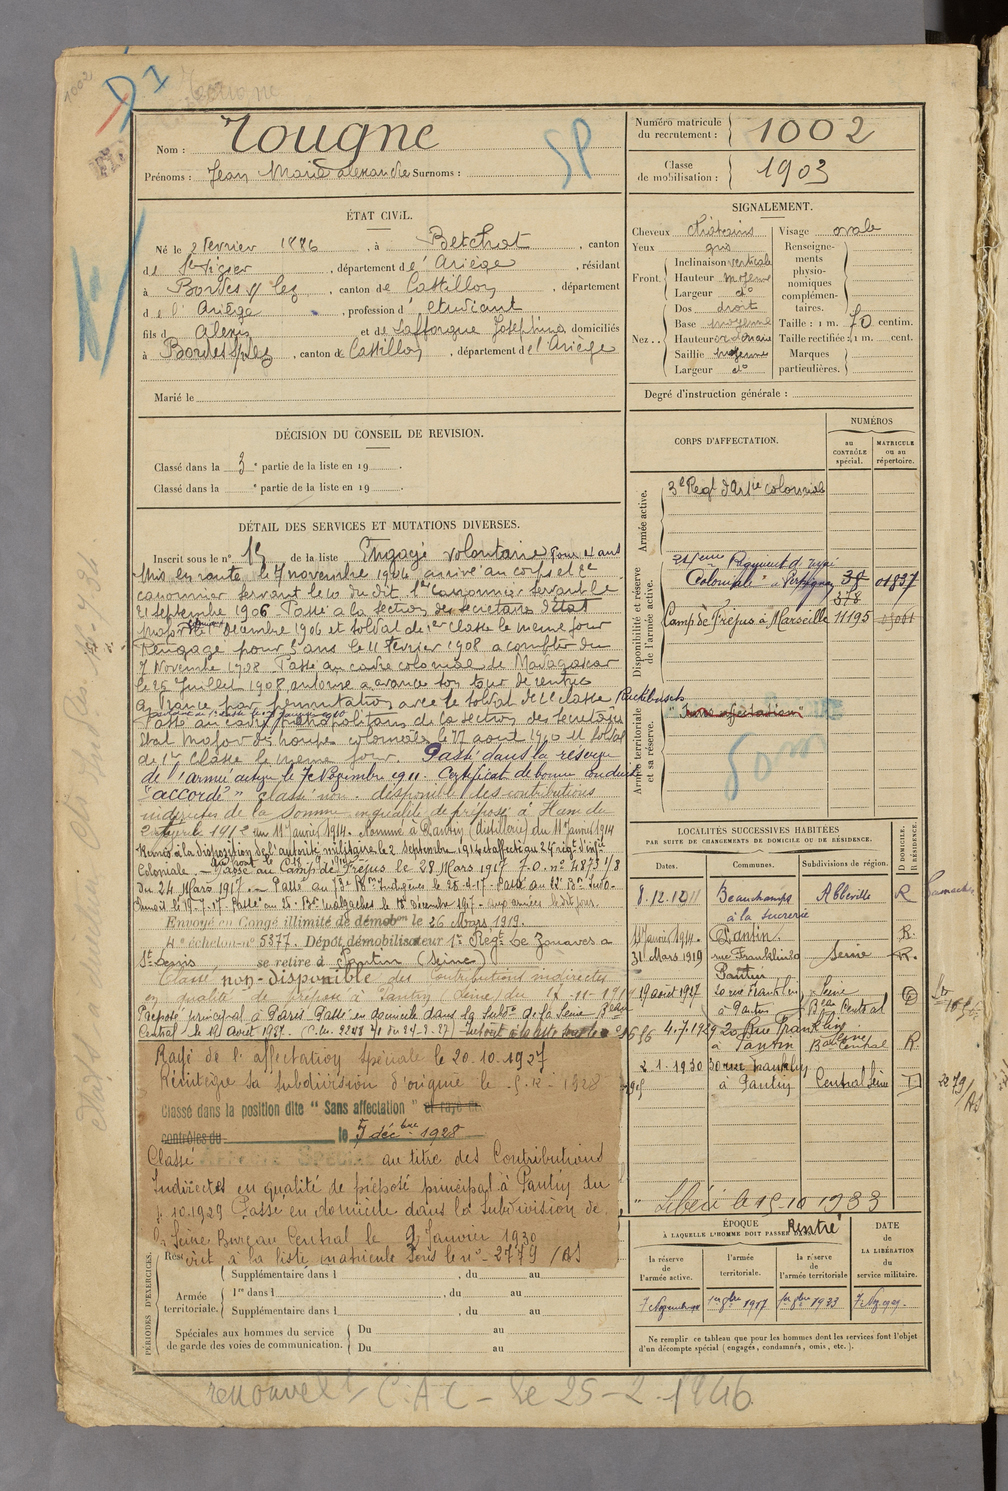 1002
Nom : Tougne
Prénoms : Jean Marie Alexandre Surnoms :
SP
Numéro matricule du recrutement : 1002
Classe de mobilisation : 1903
ÉTAT CIVIL.
Né le 2 février 1886, à Betchat, canton
de Ste Lizier, département de l'Ariège, résidant
à Bordes s/ Lez, canton de Castillon, département
de l'Ariège, profession d'étudiant
fils d'Alexis et de Lafforgue Joséphine domiciliés
à Bordes s/ Lez, canton de Castillon, département de l'Ariège
Marié le
SIGNALEMENT.
Cheveux châtains Visage ovale
Yeux gris
Front. Inclinaison verticale
Hauteur moyenne
Largeur do
Nez... Dos droit
Base moyenne
Hauteur ordinaire
Saillie moyenne
Largeur do
Renseignements physionomiques complémentaires.
Taille : 1 m. 70 centim.
Taille rectifiée : 1 m. cent.
Marques particulières.
Degré d'instruction générale :
DÉCISION DU CONSEIL DE REVISION.
Classé dans la 3e partie de la liste en 19 .
Classé dans la e partie de la liste en 19 .
DÉTAIL DES SERVICES ET MUTATIONS DIVERSES.
Inscrit sous le n° 15 de la liste Engagé volontaire pour 4 ans
Mis en route le 7 novembre 1904 arrivé au corps et 2e
canonnier servant le 10 du dit. 1er canonnier servant le
21 septembre 1906 Passé à la section des secrétaires d'état
major décembre 1906 et soldat de 1er classe le même jour
Rengagé pour 3 ans le 11 février 1908 à compter du
7 Novembre 1908. Passé au cadre colonial de Madagascar
le 25 Juillet 1908 autorisé à avancer son tour de rentrée
en France par permutation avec le soldat de 2e classe
Passé au cadre métropolitain de la section des secrétaires
Etat Major des troupes coloniales le 27 août 1910 et soldat
de 1re classe le même jour. Passé dans la réserve
de l'armée active le 7 Novembre 1911. Certificat de bonne conduite
"accordé" classé non-disponible des contributions
indirectes de la Somme en qualité de préposé à Ham du
1912 au 11 janvier 1914. Nommé à Pantin (distillerie) du 11 janvier 1914
Remis à la disposition de l'autorité militaire le 2 septembre 1914 et affecté au 24 régt d'infie
Coloniale. Passé au Camp de Fréjus le 28 Mars 1917 7.O. n° 4873 1/8
du 24 Mars 1917. Passé au 73e Bn Indigènes le 25-4-17. Passé au 12e Bn Indo-
chinois le 19-7-17 Passé au 25e Bn Malgaches le 18 Décembre 1917 - aux armées le dit jour
Envoyé en Congé illimité de démobon le 26 Mars 1919.
4e échelon n° 5377. Dépôt démobilisateur 1er Régt de Zouaves à
St Denis se retire à Pantin (Seine)
Classé non-disponible des Contributions indirectes
en qualité de préposé à Pantin (Seine) du 17-11-1914
Préposé principal à Paris Passé en domicile dans la Subdon de la Seine Beau
Central le 19 Août 1927.
Rayé de l'affectation spéciale le 20.10.1927
Réintègre sa subdivision d'origine le 5-12-1928
Classé dans la position dite "Sans affectation" et rayé des
contrôles du le 5 décbre 1928
Classé AFFECTÉ SPÉCIAL au titre des Contributions
Indirectes en qualité de préposé principal à Pantin du
1.10.1929 Passé en domicile dans la subdivision de
la Seine Bureau Central le 2 Janvier 1930
à la liste matricule sous le n° 2779 /AS
CORPS D'AFFECTATION.
NUMÉROS
au CONTRÔLE spécial.
MATRICULE ou au répertoire.
Armée active.
3e Régt d'Artie coloniale
Disponibilité et réserve de l'armée active.
24ème Régiment d'Infie
Coloniale "Perpignan" 38 01837
378
Camp de Fréjus à Marseille 11195
Armée territoriale et sa réserve.
"Sans affectation"
Som
LOCALITÉS SUCCESSIVES HABITÉES
PAR SUITE DE CHANGEMENTS DE DOMICILE OU DE RÉSIDENCE.
Dates. Communes. Subdivisions de région. D DOMICILE. R RÉSIDENCE.
8.12.1911 Beauchamps à la sucrerie Abbeville R
11 Janvier 1914. Pantin. R.
31 Mars 1919 rue Franklin 20 Pantin Seine R.
19 août 1927 20 rue Franklin à Pantin Seine Beau Central D
4.7.1929 20 Rue Franklin à Pantin Seine Bau Central R.
2.1.1930 30 rue Franklin à Pantin Central Seine D
2279/AS
Libéré le 15-10 1933
ÉPOQUE
À LAQUELLE L'HOMME DOIT PASSER DANS
Rentré
la réserve de l'armée active.
l'armée territoriale.
la réserve de l'armée territoriale
DATE DE LA LIBÉRATION du service militaire.
7 Novembre 1er 8bre 1917 1er 8bre 1923
Ne remplir ce tableau que pour les hommes dont les services font l'objet
d'un décompte spécial (engagés, condamnés, omis, etc.).
PÉRIODES D'EXERCICES.
Supplémentaire dans l , du au
Armée territoriale. 1re dans l , du au
Supplémentaire dans l , du au
Spéciales aux hommes du service
de garde des voies de communication. Du au
Du au
renouvelt C.A.C - le 25-2-1946